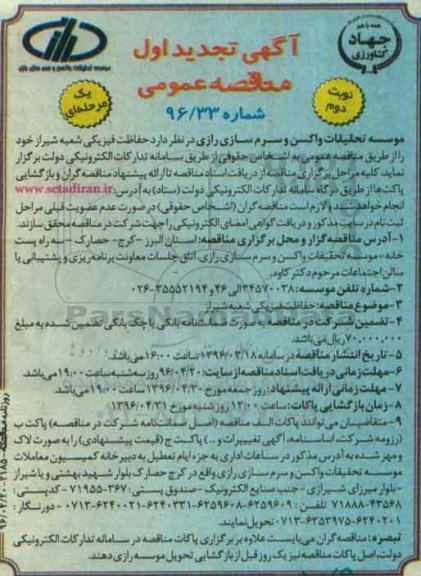 جهاد
کشاورزی
رازی
موسسه تحقیقات واکسن و سرم سازی رازی
آگهی تجدید اول
مناقصه عمومی
شماره ۹۶/۳۳
نوبت
دوم
یک
مرحله‌ای
موسسه تحقیقات واکسن و سرم سازی رازی در نظر دارد حفاظت فیزیکی شعبه شیراز خود
را از طریق مناقصه عمومی به اشخاص حقوقی از طریق سامانه تدارکات الکترونیکی دولت برگزار
نماید. کلیه مراحل برگزاری مناقصه از دریافت اسناد مناقصه تا ارائه پیشنهاد مناقصه گران و بازگشایی
پاکت‌ها از طریق درگاه سامانه تدارکات الکترونیکی دولت (ستاد) به آدرس: www.setadiran.ir
انجام خواهد شد و لازم است مناقصه گران (اشخاص حقوقی) در صورت عدم عضویت قبلی مراحل
ثبت نام در سایت مذکور و دریافت گواهی امضای الکترونیکی را جهت شرکت در مناقصه محقق سازند.
۱- آدرس مناقصه گزار و محل برگزاری مناقصه: استان البرز - کرج - حصارک - سه راه پست
خانه - موسسه تحقیقات واکسن و سرم سازی رازی، اتاق جلسات معاونت برنامه ریزی و پشتیبانی یا
سالن اجتماعات مرحوم دکتر کاوه.
۲- شماره تلفن موسسه: ۳۴۵۷۰۰۳۸ الی ۴۶ و ۳۵۵۵۲۱۹۴-۰۲۶
۳- موضوع مناقصه: حفاظت فیزیکی شعبه شیراز
۴- تضمین شرکت در مناقصه به صورت ضمانتنامه بانکی یا چک بانکی تضمین شده به مبلغ
۷۰,۰۰۰,۰۰۰ ریال می‌باشد.
۵- تاریخ انتشار مناقصه در سامانه ۱۳۹۶/۰۳/۱۸ ساعت ۱۶:۰۰ می‌باشد.
۶- مهلت زمانی دریافت اسناد مناقصه از سایت: ۹۶/۰۴/۲۰ روز سه شنبه ساعت ۱۹:۰۰ می‌باشد.
۷- مهلت زمانی ارائه پیشنهاد: روز جمعه مورخ ۱۳۹۶/۰۴/۳۰ ساعت ۱۹:۰۰ می‌باشد.
۸- زمان بازگشایی پاکات: ساعت ۱۲:۰۰ روز شنبه مورخ ۱۳۹۶/۰۴/۳۱
۹- متقاضیان می‌توانند پاکات الف مناقصه (اصل ضمانتنامه شرکت در مناقصه) پاکت ب
(رزومه شرکت، اساسنامه، آگهی تغییرات و...) پاکت ج (قیمت پیشنهادی) را به صورت لاک
و مهر شده به آدرس مذکور در ساعات اداری به جزء ایام تعطیل به دبیرخانه کمیسیون معاملات
موسسه تحقیقات واکسن و سرم سازی رازی واقع در کرج حصارک بلوار شهید بهشتی و یا شیراز
- بلوار میرزای شیرازی - جنب صنایع الکترونیک - صندوق پستی: ۳۶۷-۷۱۹۵۵ - کدپستی:
۷۱۸۸۸-۴۳۵۶۸ تلفن: ۶۲۵۹۶۰۹-۶۲۵۹۶۰۸-۶۲۴۰۳۳۱-۶۲۴۰۰۲۱-۰۷۱۳ - دورنگار:
۶۲۴۰۲۰۱-۶۲۵۳۹۷۵-۰۷۱۳ تحویل نمایند.
تبصره: مناقصه گران می‌بایست علاوه بر بارگزاری پاکات مناقصه در سامانه تدارکات الکترونیکی
دولت، اصل پاکات مناقصه نیز یک روز قبل از بازگشایی تحویل موسسه رازی دهند.
ParsNamadData